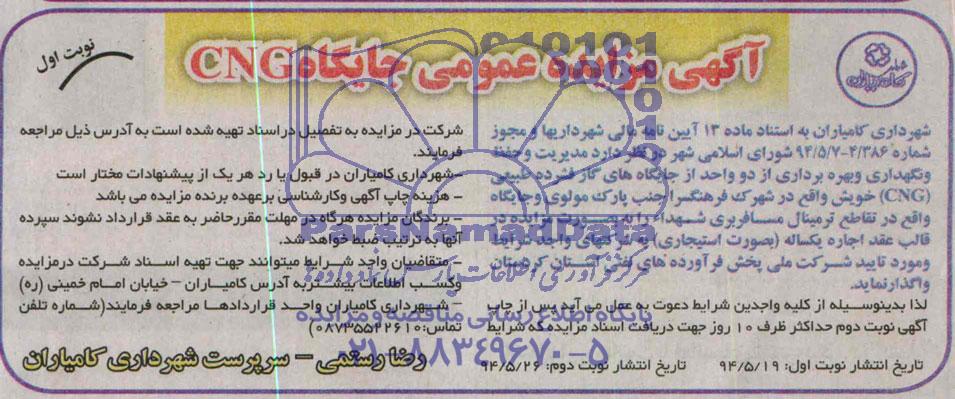 آگهی مزایده عمومی جایگاه CNG
نوبت اول
شهرداری کامیاران به استناد ماده ۱۳ آیین نامه مالی شهرداریها و مجوز
شماره ۴/۳۸۶-۹۴/۵/۷ شورای اسلامی شهر در نظر دارد مدیریت و حفظ
ونگهداری وبهره برداری از دو واحد از جایگاه های گاز فشرده طبیعی
(CNG) خویش واقع در شهرک فرهنگسرا جنب پارک مولوی وجایگاه
واقع در تقاطع ترمینال مسافربری شهداء را به صورت مزایده در
قالب عقد اجاره یکساله (بصورت استیجاری) به شرکتهای واجد شرایط
ومورد تایید شرکت ملی پخش فرآورده های نفتی استان کردستان
واگذار نماید.
لذا بدینوسیله از کلیه واجدین شرایط دعوت به عمل می آید پس از چاپ
آگهی نوبت دوم حداکثر ظرف ۱۰ روز جهت دریافت اسناد مزایده که شرایط
شرکت در مزایده به تفصیل در اسناد تهیه شده است به آدرس ذیل مراجعه
فرمایند.
-شهرداری کامیاران در قبول یا رد هر یک از پیشنهادات مختار است
- هزینه چاپ آگهی وکارشناسی برعهده برنده مزایده می باشد
- برندگان مزایده هرگاه در مهلت مقرر حاضر به عقد قرارداد نشوند سپرده
آنها به ترتیب ضبط خواهد شد.
- متقاضیان واجد شرایط میتوانند جهت تهیه اسناد شرکت در مزایده
وکسب اطلاعات بیشتر به آدرس کامیاران – خیابان امام خمینی (ره)
– شهرداری کامیاران واحد قراردادها مراجعه فرمایند(شماره تلفن
تماس:۰۸۷۳۵۵۲۲۶۱۰)
تاریخ انتشار نوبت اول: ۹۴/۵/۱۹ تاریخ انتشار نوبت دوم: ۹۴/۵/۲۶
رضا رستمی – سرپرست شهرداری کامیاران
ParsNamadData
پایگاه اطلاع رسانی مناقصه و مزایده
۰۲۱-۸۸۳۴۹۶۷۰-۵